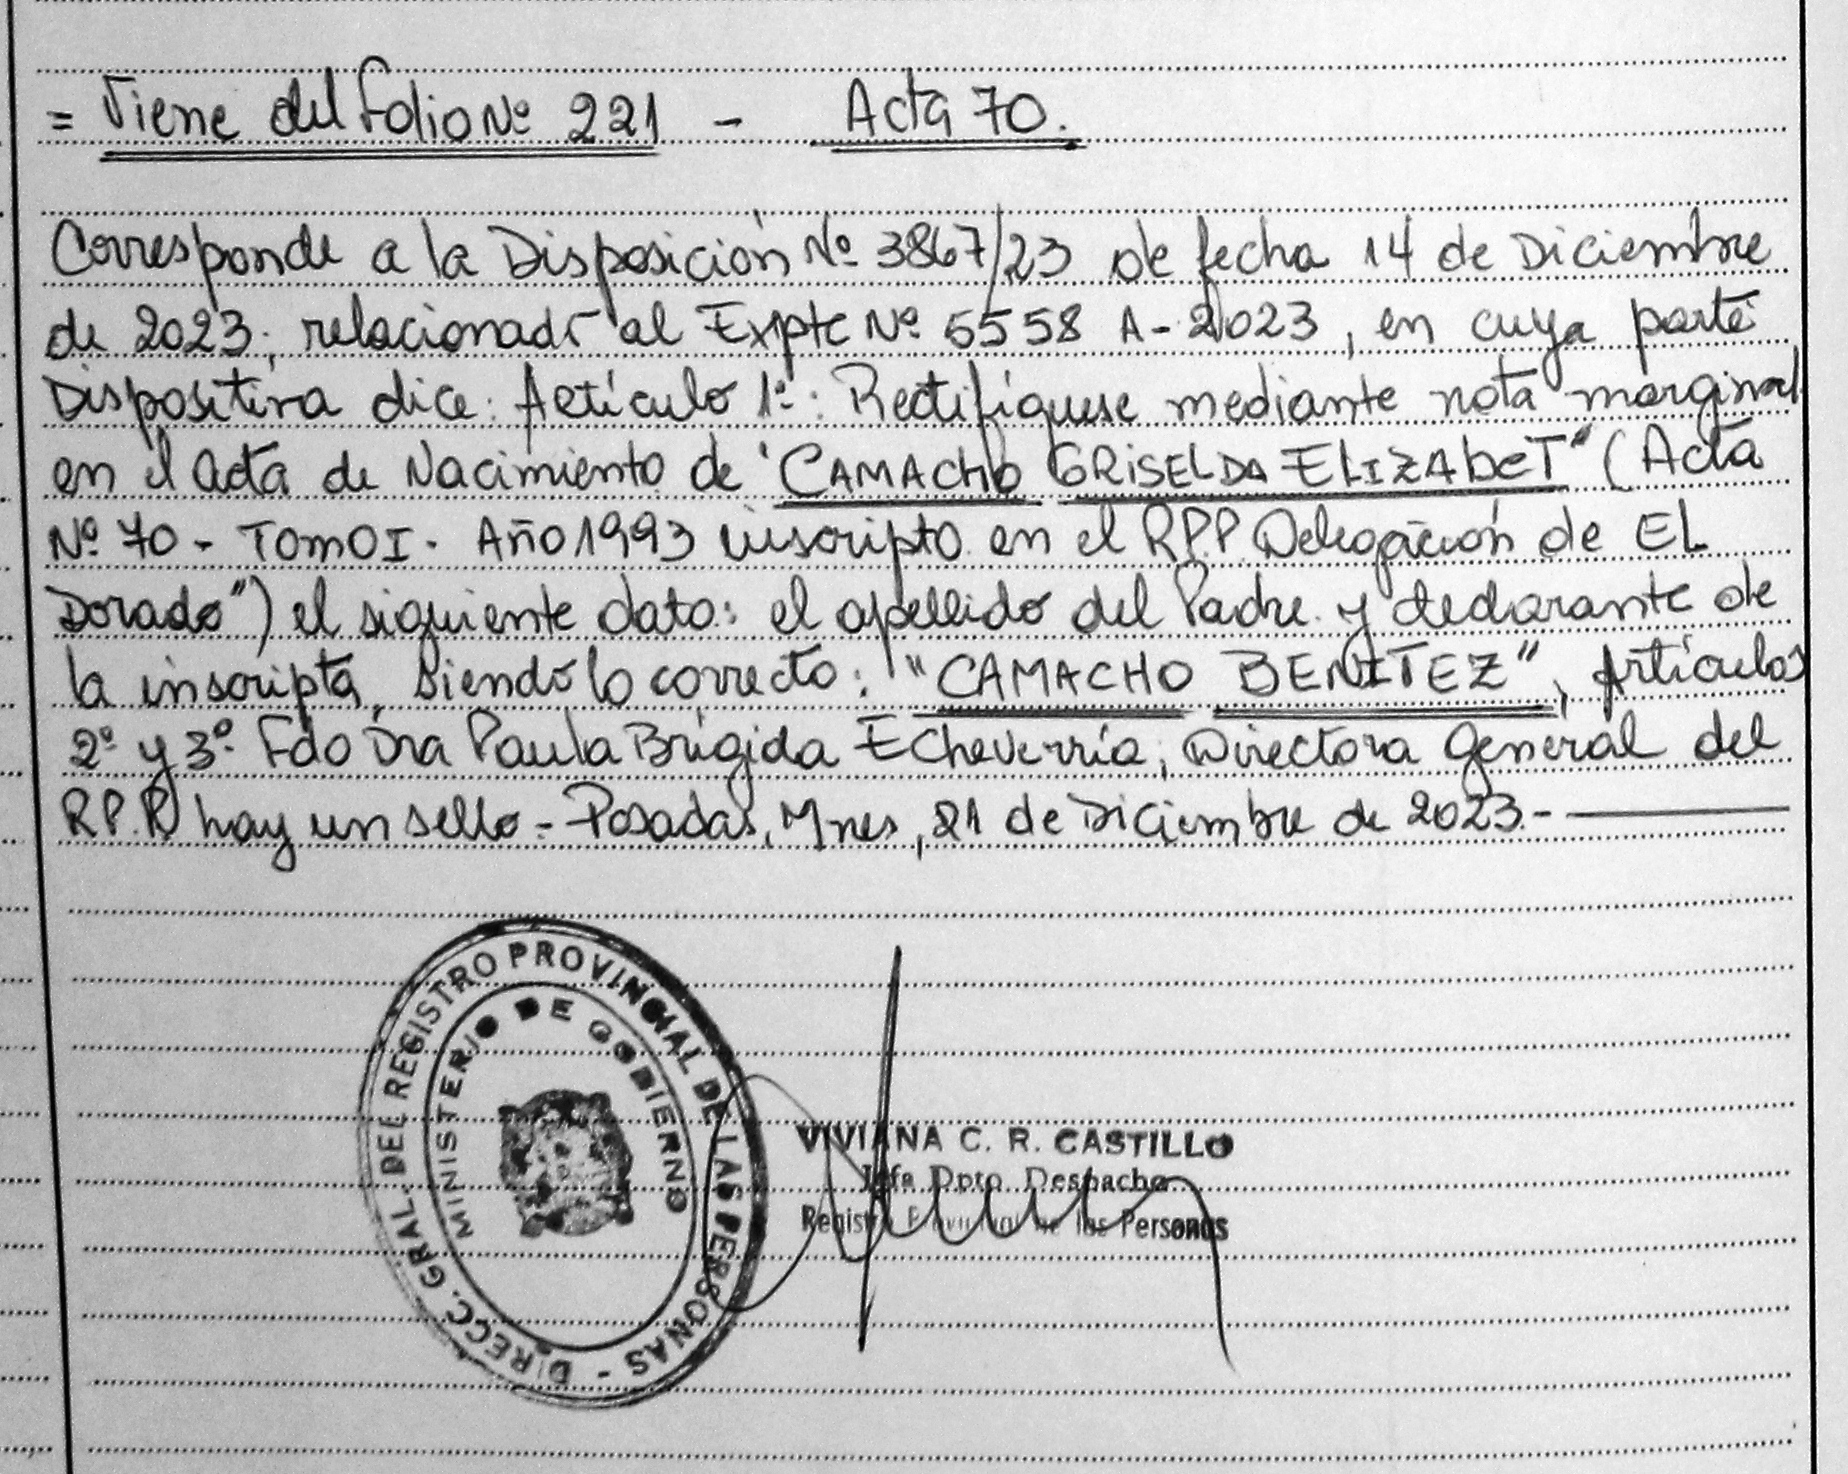 = Viene del folio Nº 221 - Acta 70.
Corresponde a la Disposición Nº 3867/23 de fecha 14 de Diciembre
de 2023; relacionado al Expte Nº 5558 A-2023, en cuya parte
Dispositiva dice: Artículo 1º: Rectifíquese mediante nota marginal
en el acta de Nacimiento de "CAMACHO GRISELDA ELIZABET" (Acta
Nº 70 - TOMO I - Año 1993 inscripto en el RPP Delegación de EL
Dorado") el siguiente dato: el apellido del Padre y declarante de
la inscripta, siendo lo correcto: "CAMACHO BENITEZ", Artículos
2º y 3º Fdo Dra Paula Brígida Echeverría, Directora General del
R.P.P. hay un sello - Posadas, Mnes, 21 de Diciembre de 2023.-
DIRECC. GRAL. DEL REGISTRO PROVINCIAL DE LAS PERSONAS -
MINISTERIO DE GOBIERNO
VIVIANA C. R. CASTILLO
Jefe Dpto Despacho
Registro Provincial de las Personas